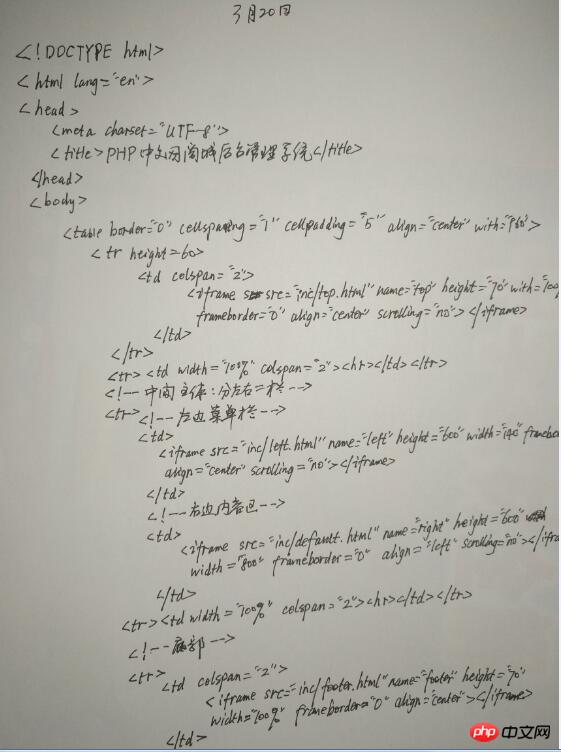 3月20日
<!DOCTYPE html>
<html lang="en">
<head>
<meta charset="UTF-8">
<title>PHP中文网商城后台管理系统</title>
</head>
<body>
<table border="0" cellspacing="1" cellpadding="5" align="center" with="960">
<tr height=60>
<td colspan="2">
<iframe src="inc/top.html" name="top" height="70" with="100
frameborder="0" align="center" scrolling="no"></iframe>
</td>
</tr>
<tr><td width="100%" colspan="2"><hr></td></tr>
<!--中间主体:分左右二栏-->
<tr><!--左边菜单栏-->
<td>
<iframe src="inc/left.html" name="left" height="600" width="140" framebo
align="center" scrolling="no"></iframe>
</td>
<!--右边内容区-->
<td>
<iframe src="inc/default.html" name="right" height="600"
width="800" frameborder="0" align="left" scrolling="no"></ifra
</td>
<tr><td width="100%" colspan="2"><hr></td></tr>
<!--底部-->
<tr>
<td colspan="2">
<iframe src="inc/footer.html" name="footer" height="70"
width="100%" frameborder="0" align="center"></iframe>
</td>
php 中文网